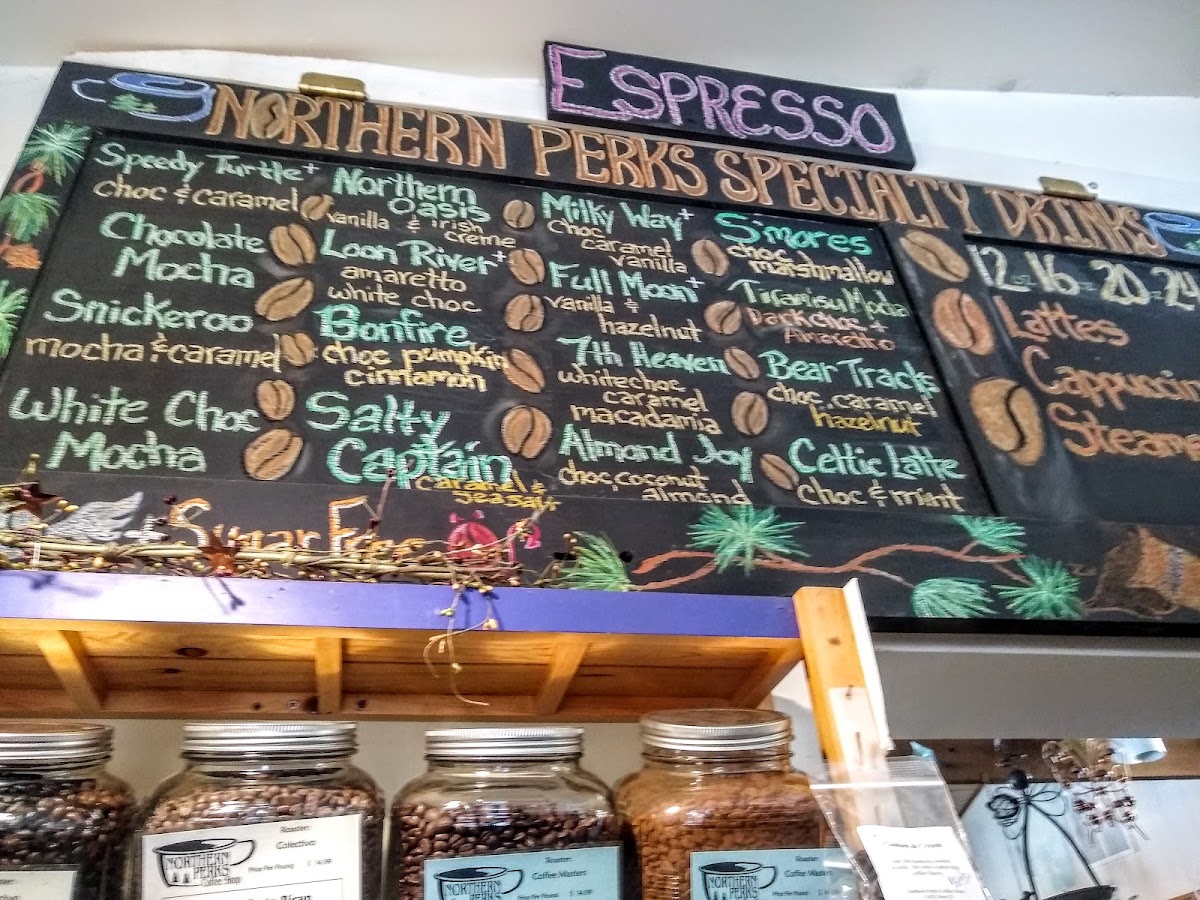 ESPRESSO
NORTHERN PERKS SPECIALTY DRINKS
Speedy Turtle+
choc & caramel
Chocolate
Mocha
Snickeroo
mocha & caramel
White Choc
Mocha
Northern
Oasis
vanilla & irish
creme
Loon River+
amaretto
white choc
Bonfire
choc pumpkin
cinnamon
Salty
Captain
Caramel &
Sea Salt
Milky Way+
Choc
caramel
vanilla
Full Moon+
Vanilla &
hazelnut
7th Heaven
white choc
caramel
macadamia
Almond Joy
choc, coconut
almond
S'mores
choc
marshmallow
Tiramisu Mocha
Dark choc +
Amaretto
Bear Tracks
choc, caramel
hazelnut
Celtic Latte
choc & mint
12 oz 16 oz 20 oz 24
Lattes
Cappuccin
Steame
+ Sugar Free
Roaster:
Colectivo
NORTHERN
PERKS
Coffee Shop
Price Per Pound:
Roaster:
Coffee Masters
NORTHERN
PERKS
Price Per Pound:
Roaster:
Coffee Masters
NORTHERN
PERKS
Price Per Pound: